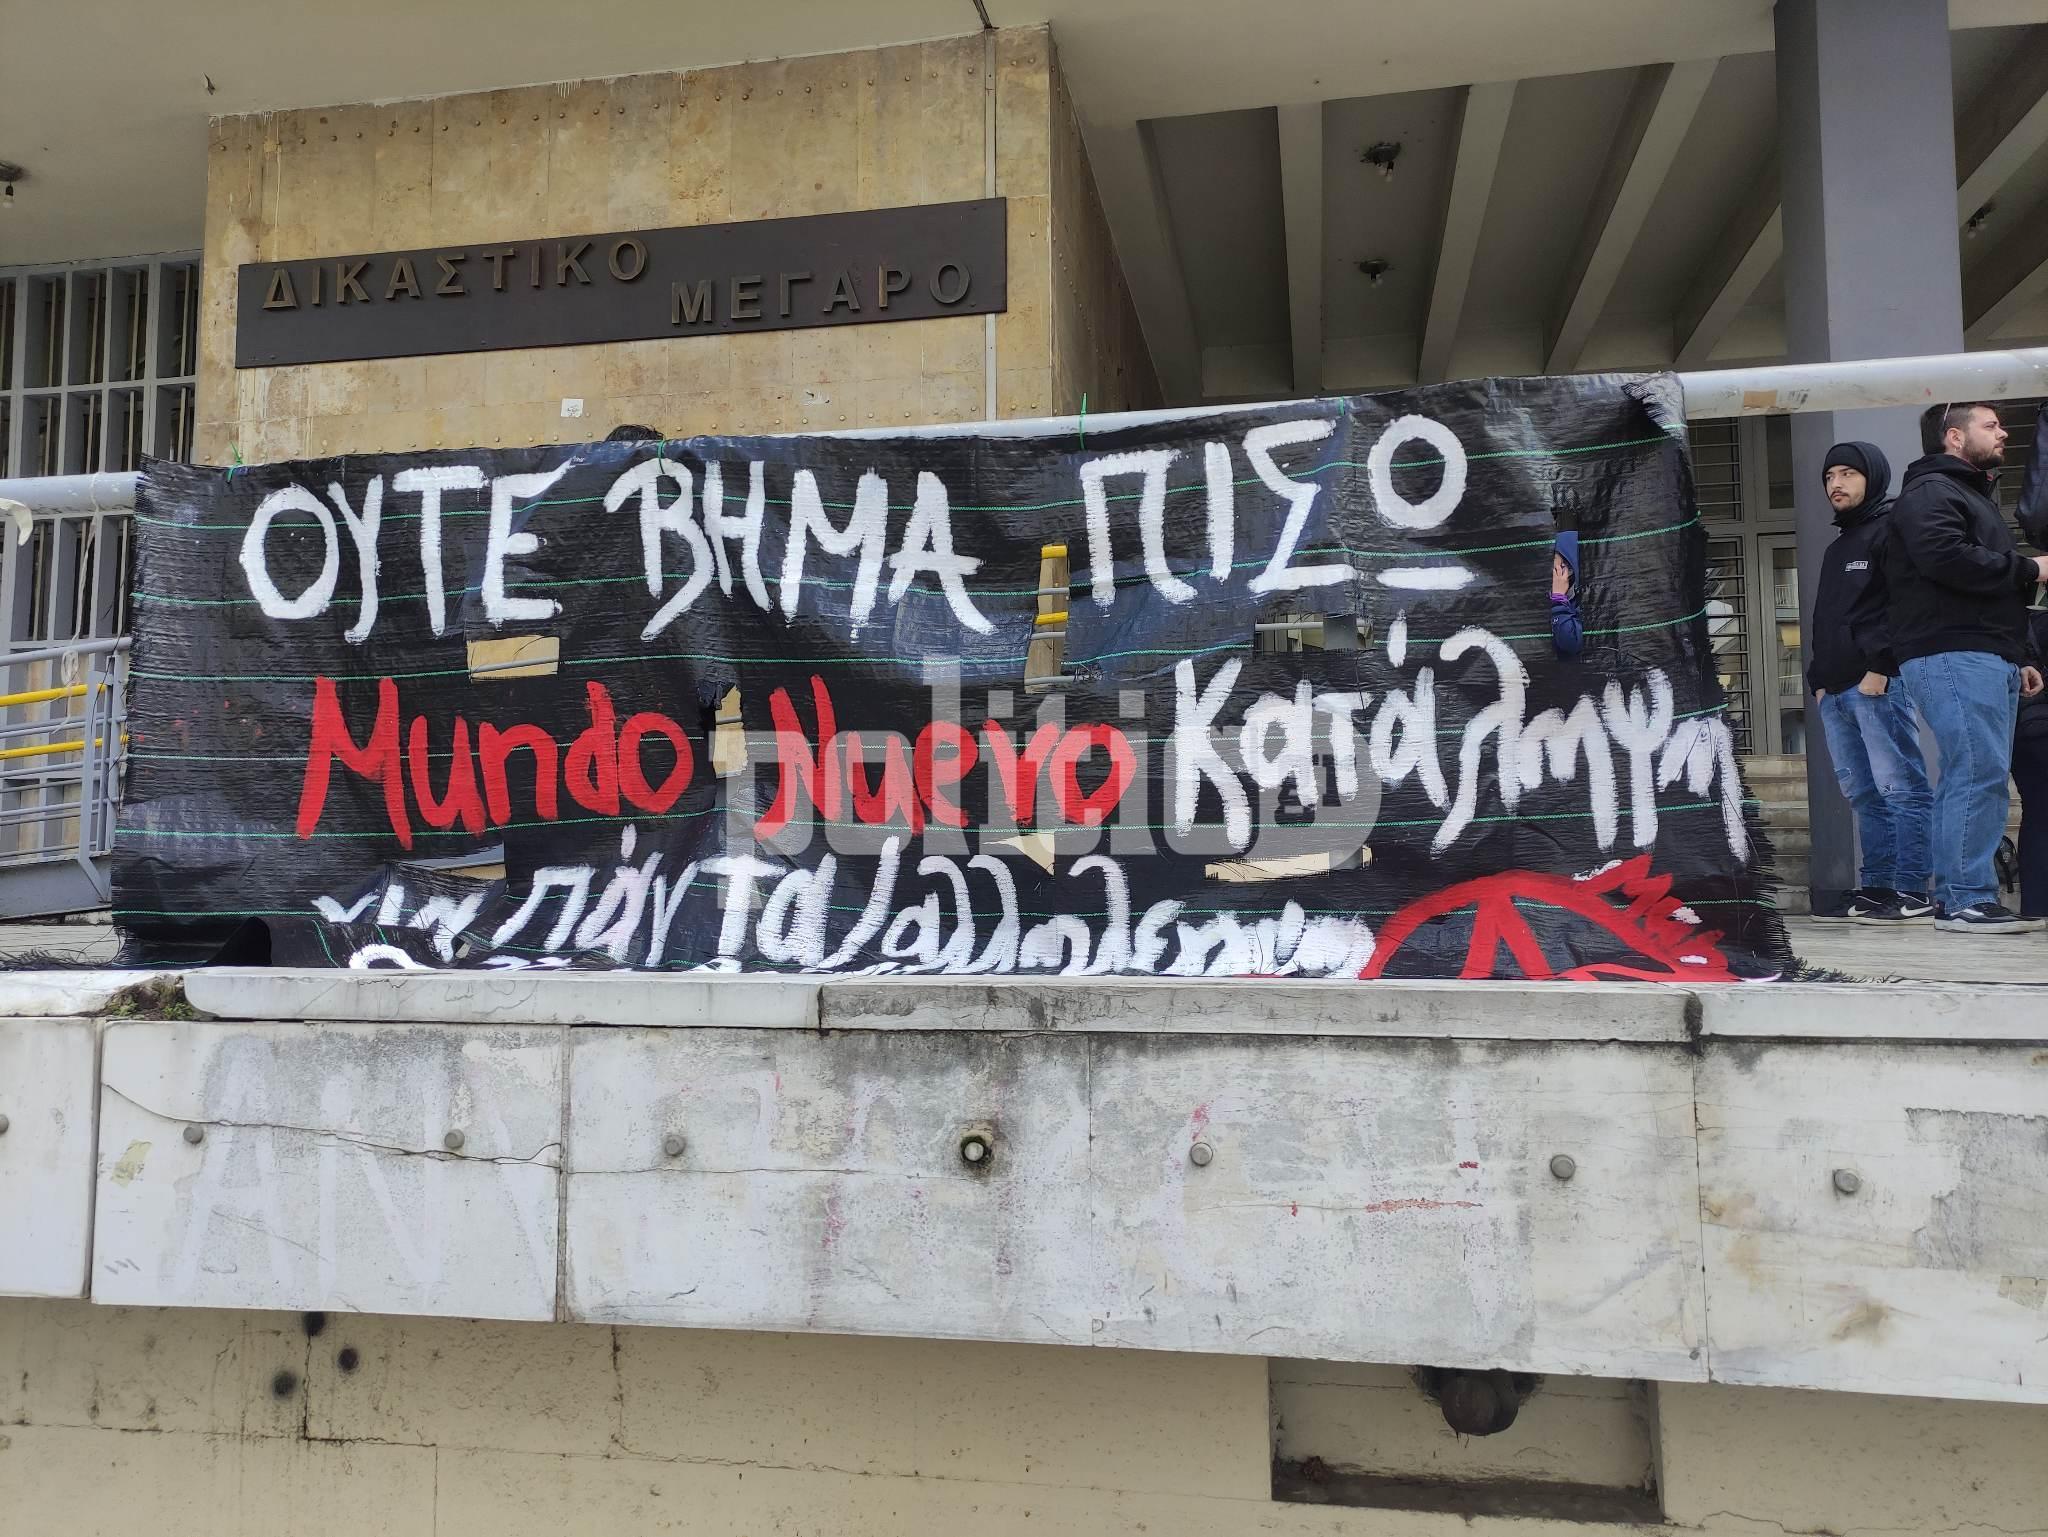 ΔΙΚΑΣΤΙΚΟ ΜΕΓΑΡΟ
ΟΥΤΕ ΒΗΜΑ ΠΙΣΩ
Mundo Nuevo Κατάληψη
για πάντα / αλληλεγγύη
politic